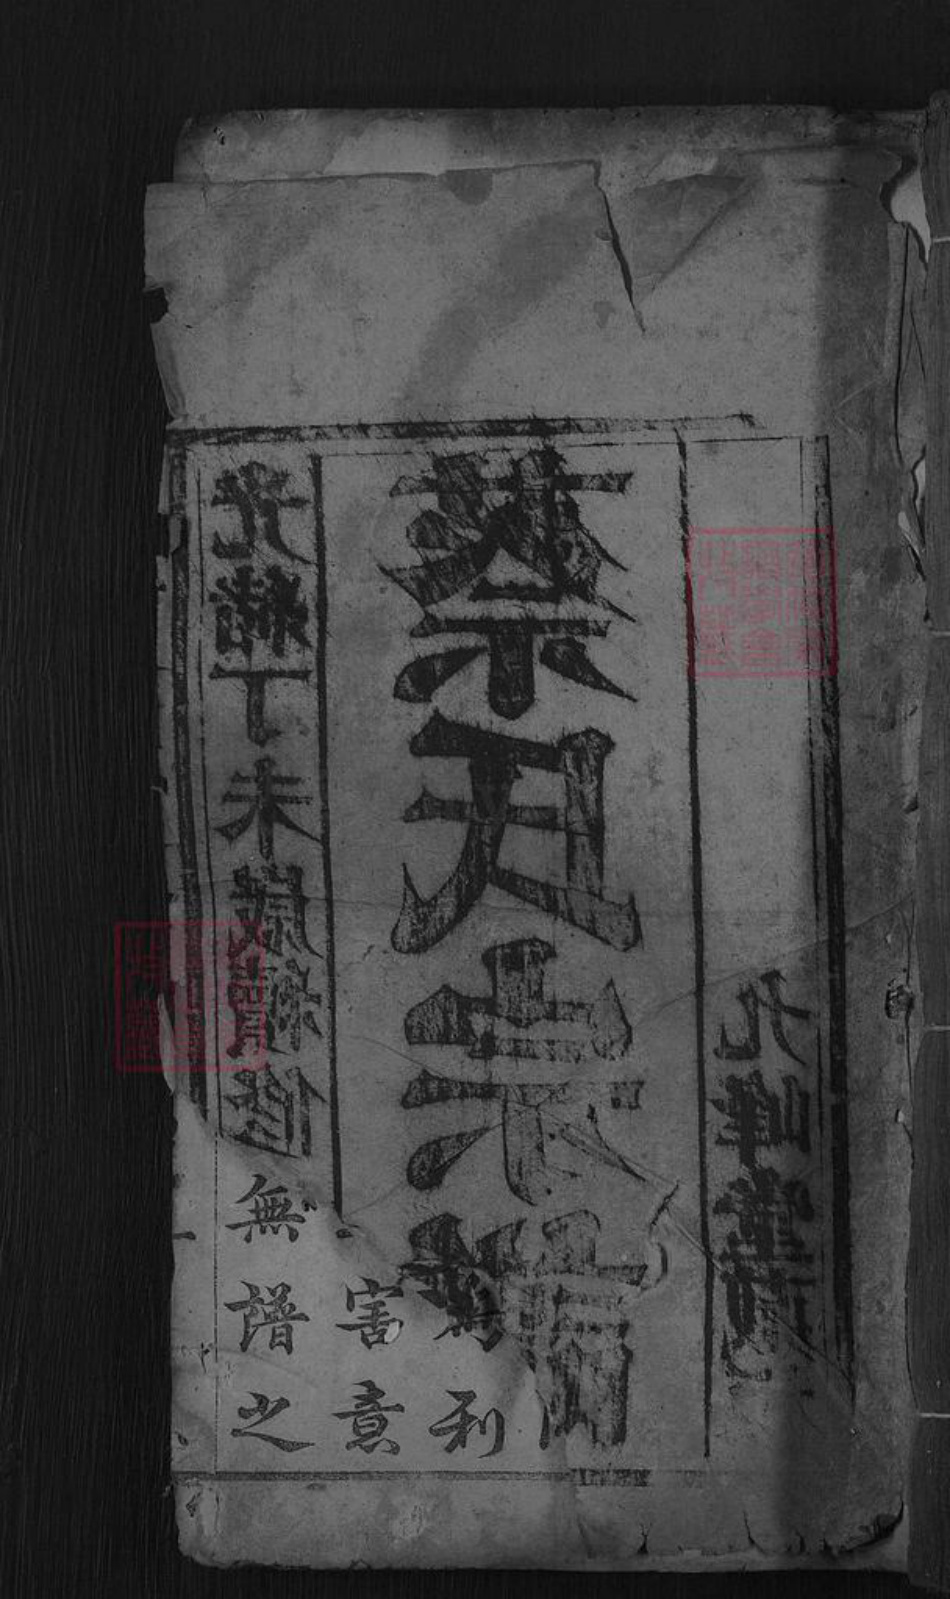 九峰堂藏
蔡氏宗譜
光緒丁未歲續修
利
害意
無譜之